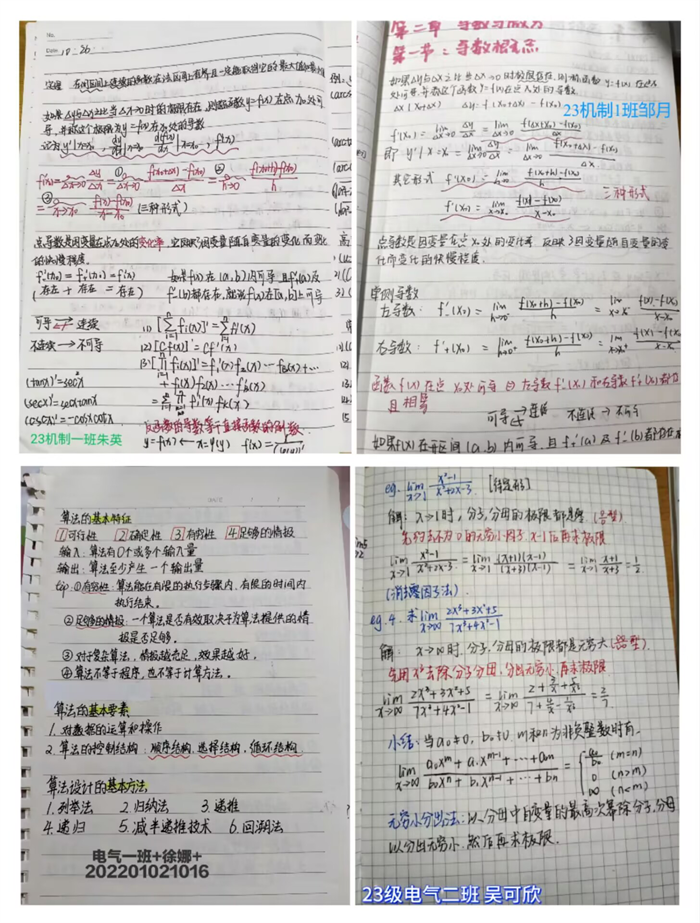 Date. 10. 26
如果Δy与Δx之比当Δx→0时的极限存在,则称函数y=f(x)在点x₀处可
导,并称这个极限为y=f(x)在x₀处的导数
f'(x₀)=lim Δx→0 Δy/Δx = lim Δx→0 f(x₀+Δx)-f(x₀)/Δx = lim h→0 f(x₀+h)-f(x₀)/h
= lim x→x₀ f(x)-f(x₀)/x-x₀ (三种形式)
点导数是因变量在点x₀处的变化率,它反映了因变量随自变量的变化而变化
的快慢程度.
f'₋(x₀) = f'₊(x₀) = f'(x₀)
(存在 + 存在 = 存在)
如果f(x)在(a,b)内可导,且f'₊(a)及
f'₋(b)都存在,就说f(x)在[a,b]上可导
可导 连续
不连续→不可导
(tanx)'=sec²x
(secx)'=secxtanx
(cscx)'=-cotxcscx
(2)[Cf(x)]'=Cf'(x)
23机制一班朱英
第二章 导数与微分
第一节:导数概念
23机制1班邹月
f'(x₀) = lim Δx→0 Δy/Δx = lim Δx→0 f(x₀+Δx)-f(x₀)/Δx
其它形式 f'(x₀)= lim h→0 f(x₀+h)-f(x₀)/h
三种形式
f'(x₀)= lim x→x₀ f(x)-f(x₀)/x-x₀
点导数是因变量在点x₀处的变化率,反映了因变量随自变量的变
化而变化的快慢程度.
单侧导数
左导数: f'₋(x₀) = lim h→0⁻ f(x₀+h)-f(x₀)/h = lim x→x₀⁻ f(x)-f(x₀)/x-x₀
右导数: f'₊(x₀) = lim h→0⁺ f(x₀+h)-f(x₀)/h = lim x→x₀⁺ f(x)-f(x₀)/x-x₀
函数f(x)在点x₀处可导⇔左导数f'₋(x₀)和右导数f'₊(x₀)都存在
且相等
可导 连续 不连续→不可导
如果f(x)在开区间(a,b)内可导,且f'₊(a)及f'₋(b)都存在
算法的基本特征
1 可行性 2 确定性 3 有穷性 4 足够的情报
输入:算法有0个或多个输入量
输出:算法至少产生一个输出量
tip:①有穷性:算法能在有限的执行步骤内、有限的时间内
执行结束。
②足够的情报:一个算法是否有效取决于为算法提供的情
报是否足够。
③对于复杂算法,情报越充足,效果越好。
④算法不等于程序,也不等于计算方法。
算法的基本要素
1. 对数据的运算和操作
2. 算法的控制结构:顺序结构、选择结构、循环结构
算法设计的基本方法
1. 列举法 2. 归纳法 3. 递推
4. 递归 5. 减半递推技术 6. 回溯法
电气一班+徐娜+
202201021016
eg. lim x→1 x²-1/x²+2x-3
解: x→1时,分子,分母的极限都是零
先约去不为0的无穷小因子x-1后再求极限
lim x→1 x²-1/x²+2x-3 = lim x→1 (x+1)(x-1)/(x+3)(x-1) = lim x→1 x+1/x+3 = 1/2
(消去零因子法)
eg.4. 求 lim x→∞ 2x³+3x²+5/7x³+4x²-1
解: x→∞时,分子,分母的极限都是无穷大
先用x³去除分子分母,分出无穷小,再求极限
lim x→∞ 2x³+3x²+5/7x³+4x²-1 = lim x→∞ 2+3/x+5/x³/7+4/x-1/x³ = 2/7
小结:当a₀≠0,b₀≠0,m和n为非负整数时有
lim x→∞ a₀xᵐ+a₁xᵐ⁻¹+…+aₘ/b₀xⁿ+b₁xⁿ⁻¹+…+bₙ = { a₀/b₀ (m=n)
0 (n>m)
∞ (n<m)
无穷小分出法:以分母中自变量的最高次幂除分子,分母
以分出无穷小,然后再求极限.
23级电气二班 吴可欣